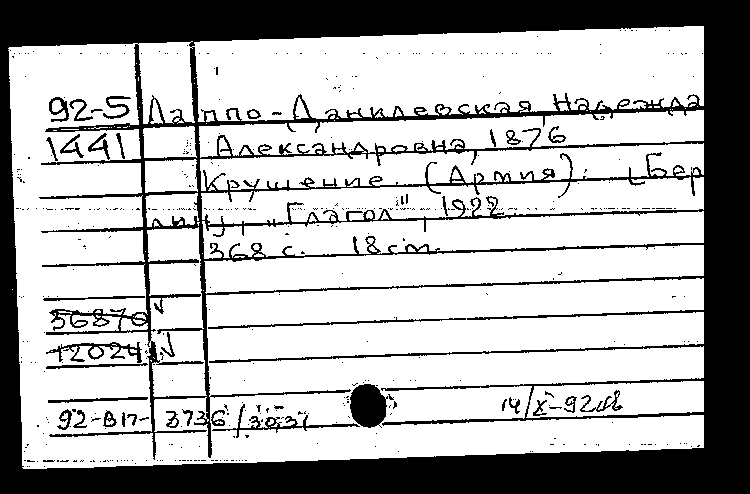 92-5 Лаппо-Данилевская, Надежда
1441 Александровна, 1876
Крушение. (Армия). [Бер
лин], "Глагол", 1922.
368 с. 18 cm.
36870
12024
92-В17-3736/
14/X-92